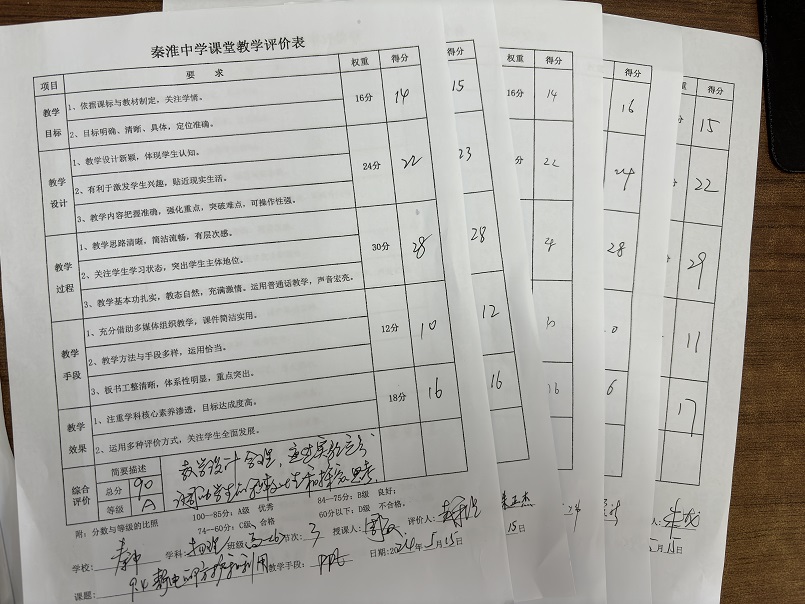 秦淮中学课堂教学评价表
项目 要 求 权重 得分
教学目标 1、依据课标与教材制定，关注学情。 16分 14
2、目标明确、清晰、具体，定位准确。
教学设计 1、教学设计新颖，体现学生认知。 24分 22
2、有利于激发学生兴趣，贴近现实生活。
3、教学内容把握准确，强化重点，突破难点，可操作性强。
教学过程 1、教学思路清晰，简洁流畅，有层次感。 30分 28
2、关注学生学习状态，突出学生主体地位。
3、教学基本功扎实，教态自然，充满激情。运用普通话教学，声音宏亮。
教学手段 1、充分借助多媒体组织教学，课件简洁实用。 12分 10
2、教学方法与手段多样，运用恰当。
3、板书工整清晰，体系性明显，重点突出。
教学效果 1、注重学科核心素养渗透，目标达成度高。 18分 16
2、运用多种评价方式，关注学生全面发展。
综合评价 简要描述 教学设计合理，
总分 90
等级 A
附：分数与等级的比照 100—85分：A级 优秀 84—75分：B级 良好；
74—60分：C级、合格 60分以下：D级 不合格。
学校： 秦中 学科： 物理 班级 节次： 3 授课人： 评价人：
课题： 静电的防护和利用 教学手段： PPT 日期：2024年5月15日
得分
15
23
28
12
16
15日
得分
14
22
16
得分
16
24
28
得分
15
22
29
11
17